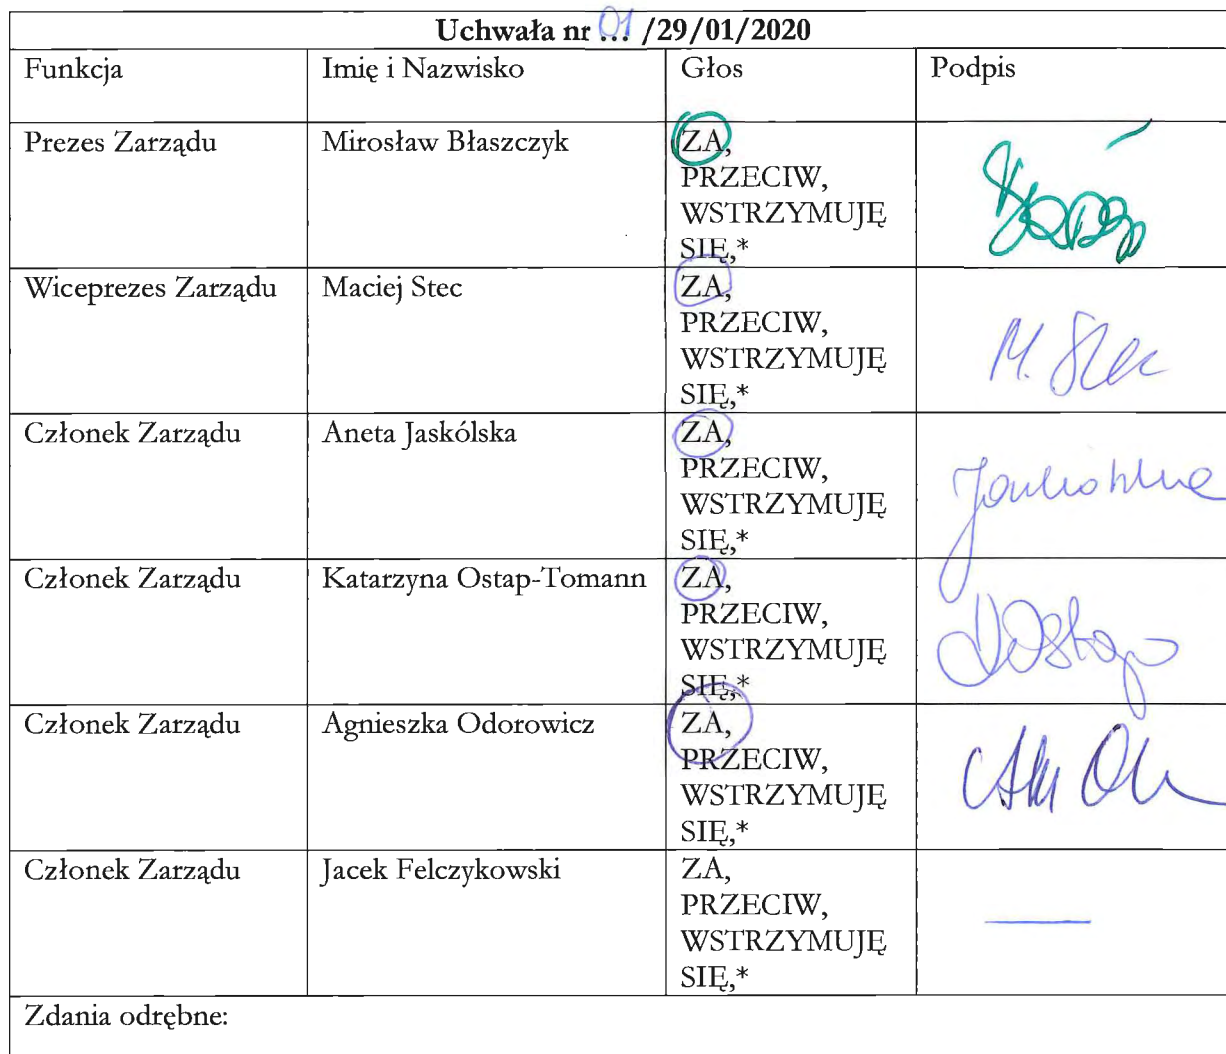 Uchwała nr 01 /29/01/2020
Funkcja Imię i Nazwisko Głos Podpis
Prezes Zarządu Mirosław Błaszczyk ZA,
PRZECIW,
WSTRZYMUJĘ
SIĘ,*
Wiceprezes Zarządu Maciej Stec ZA,
PRZECIW,
WSTRZYMUJĘ
SIĘ,*
M. Stec
Członek Zarządu Aneta Jaskólska ZA,
PRZECIW,
WSTRZYMUJĘ
SIĘ,*
Członek Zarządu Katarzyna Ostap-Tomann ZA,
PRZECIW,
WSTRZYMUJĘ
SIĘ,*
Członek Zarządu Agnieszka Odorowicz ZA,
PRZECIW,
WSTRZYMUJĘ
SIĘ,*
Członek Zarządu Jacek Felczykowski ZA,
PRZECIW,
WSTRZYMUJĘ
SIĘ,*
Zdania odrębne: